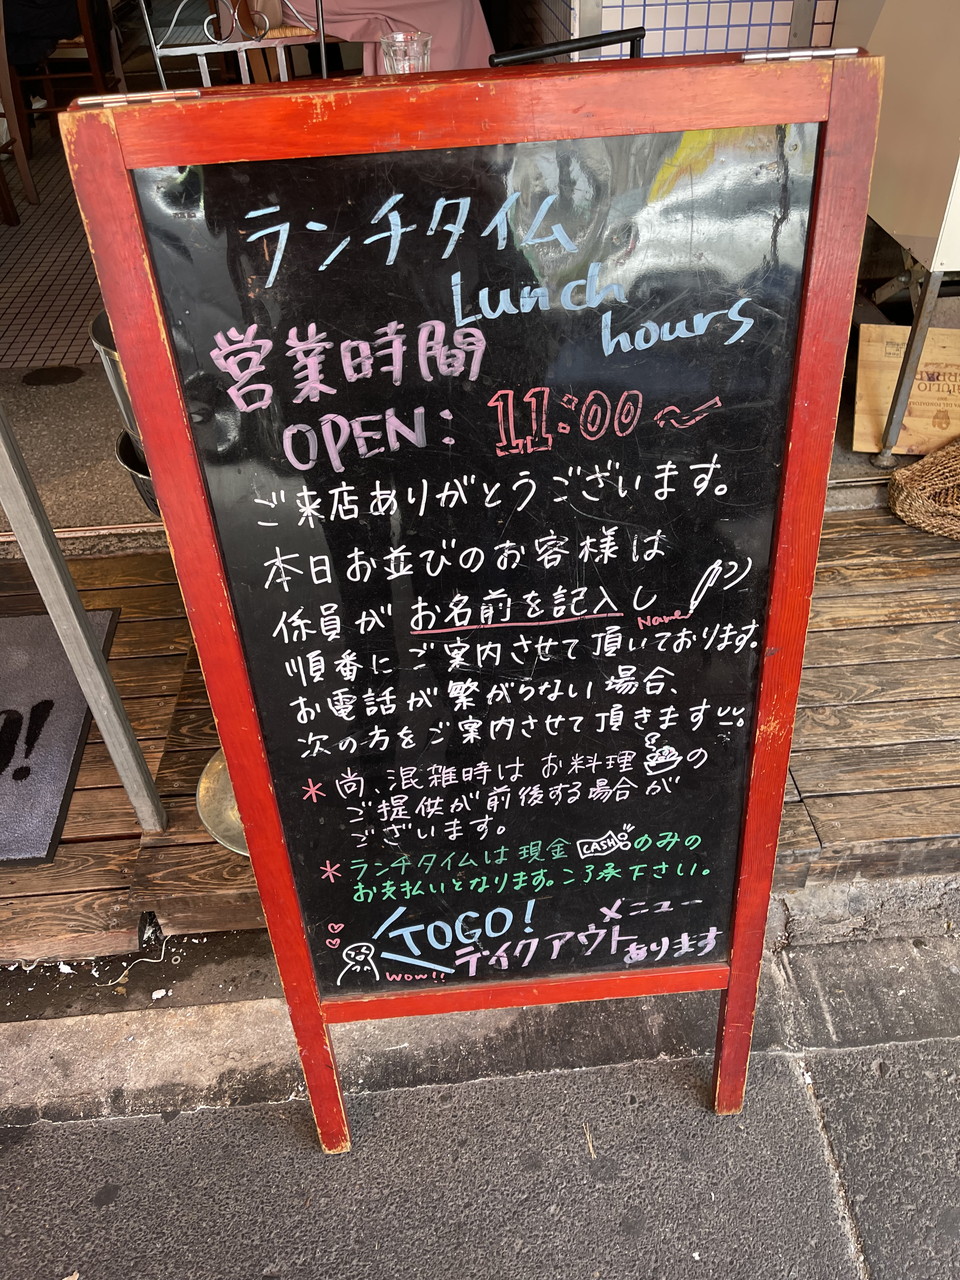 ランチタイム
Lunch
hours
営業時間
OPEN: 11:00〜
ご来店ありがとうございます。
本日お並びのお客様は
係員が お名前を記入し
Name
順番に ご案内させて頂いております。
お電話が繁がらない場合、
次の方をご案内させて頂きます
*尚、混雑時は お料理の
ご提供が前後する場合が
ございます。
*ランチタイムは現金 CASH のみの
お支払いとなります。ご了承下さい。
TOGO! メニュー
テイクアウト あります
wow!!
O!